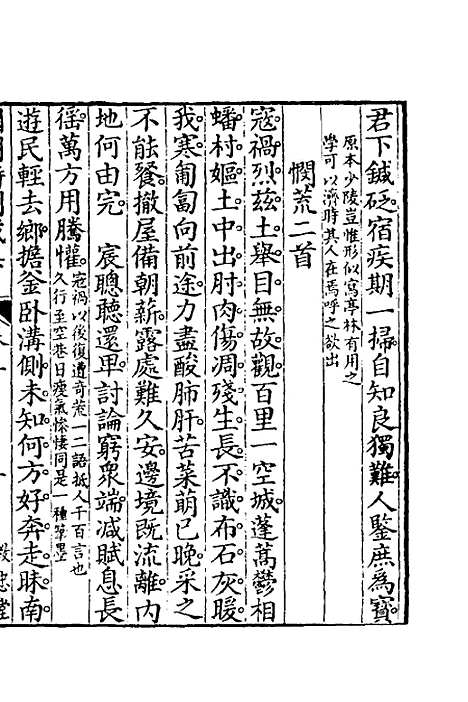 君下鍼砭宿疾期一掃自知良獨難人鑒庶為寶
原本少陵豈惟形似寫亭林有用之
學可以濟時其人在焉呼之欲出
憫荒二首
寇禍烈茲土舉目無故觀百里一空城蓬蒿鬱相
蟠村嫗土中出肘肉傷凋殘生長不識布石灰暖
我寒匍匐向前途力盡酸肺肝苦菜萌已晚采之
不能餐撤屋備朝薪露處難久安邊境既流離內
地何由完 宸聰聽還卑討論窮衆端減賦息長
徭萬方用騰懽
寇禍以後復遭奇荒一二語抵人千百言也
久行至空巷日瘦氣慘悽同是一種筆墨
遊民輕去鄉擔釜臥溝側未知何方好奔走昧南
忠堂